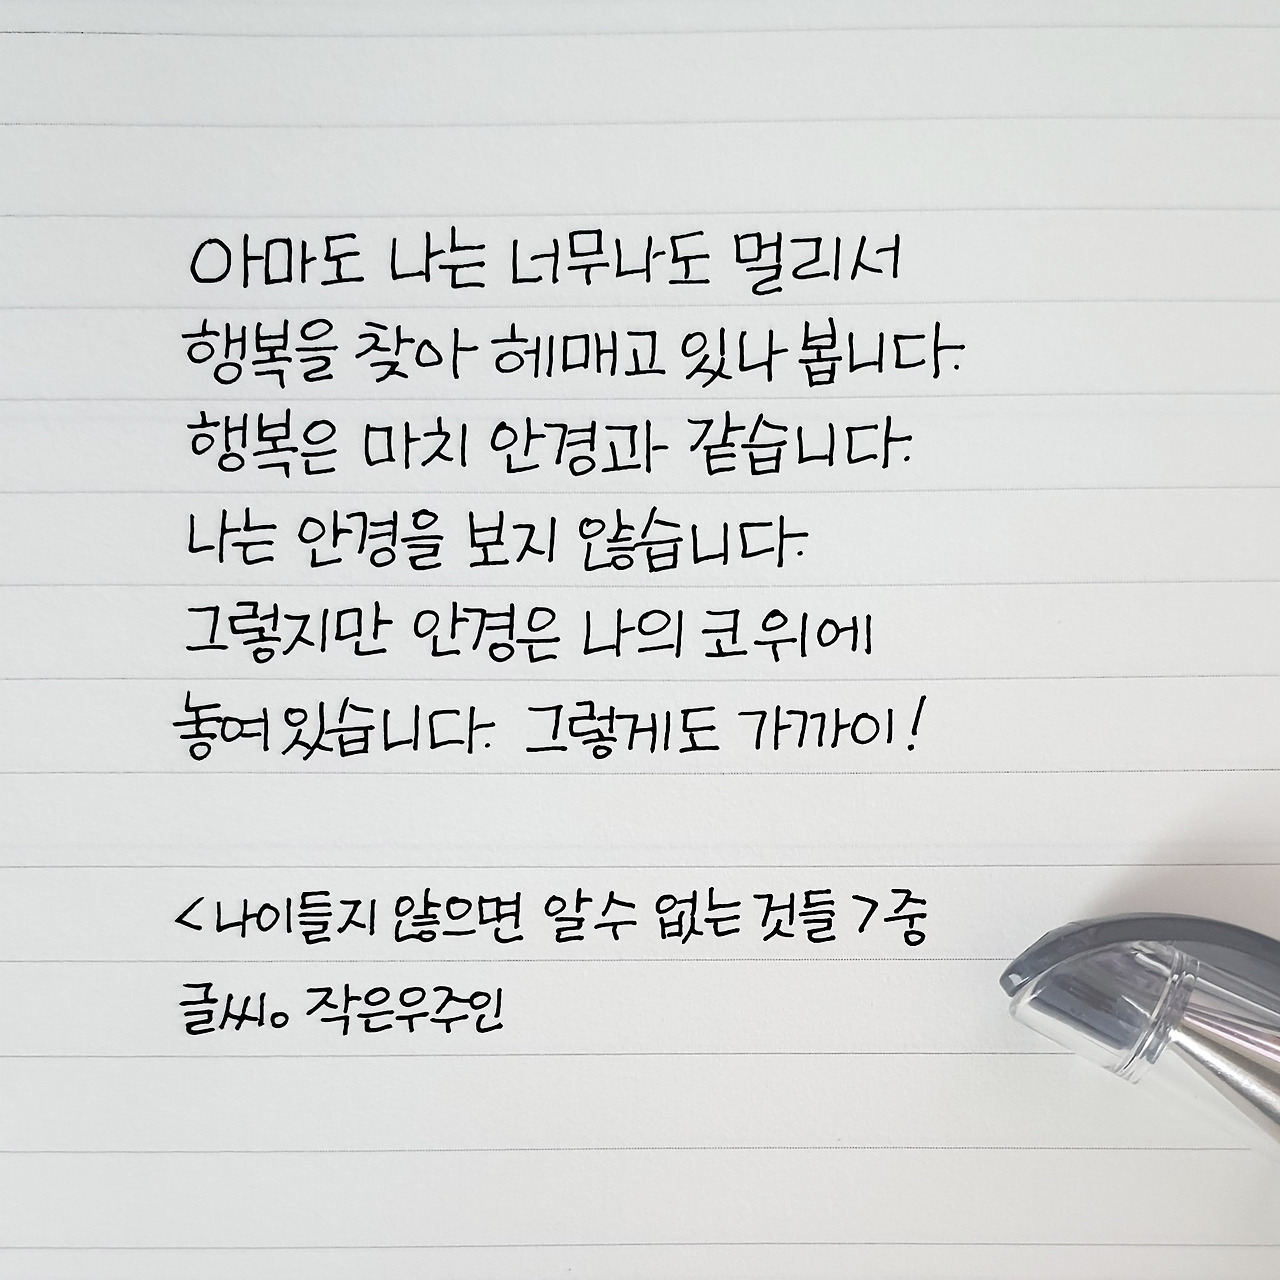 아마도 나는 너무나도 멀리서
행복을 찾아 헤매고 있나 봅니다.
행복은 마치 안경과 같습니다.
나는 안경을 보지 않습니다.
그렇지만 안경은 나의 코 위에
놓여 있습니다. 그렇게도 가까이!
<나이들지 않으면 알 수 없는 것들>중
글씨。 작은우주인